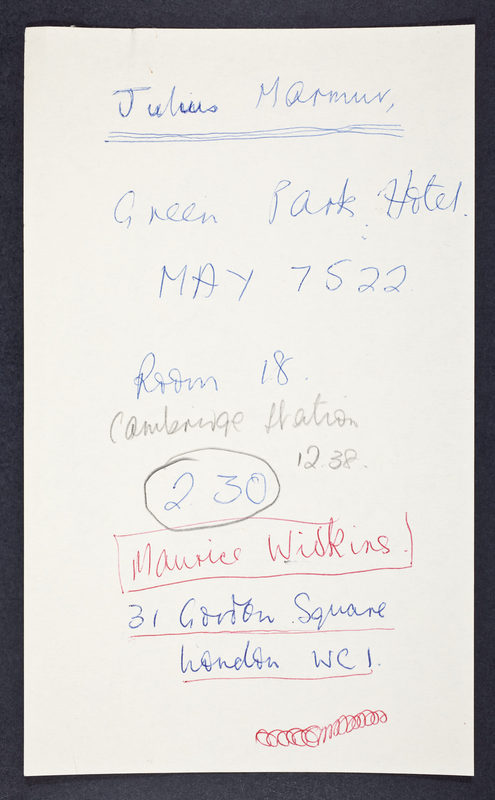 Julius Marmur,
Green Park Hotel.
MAY 7522
Room 18.
Cambridge Station
12.38.
2.30
Maurice Wilkins.
31 Gordon Square
London WC1.